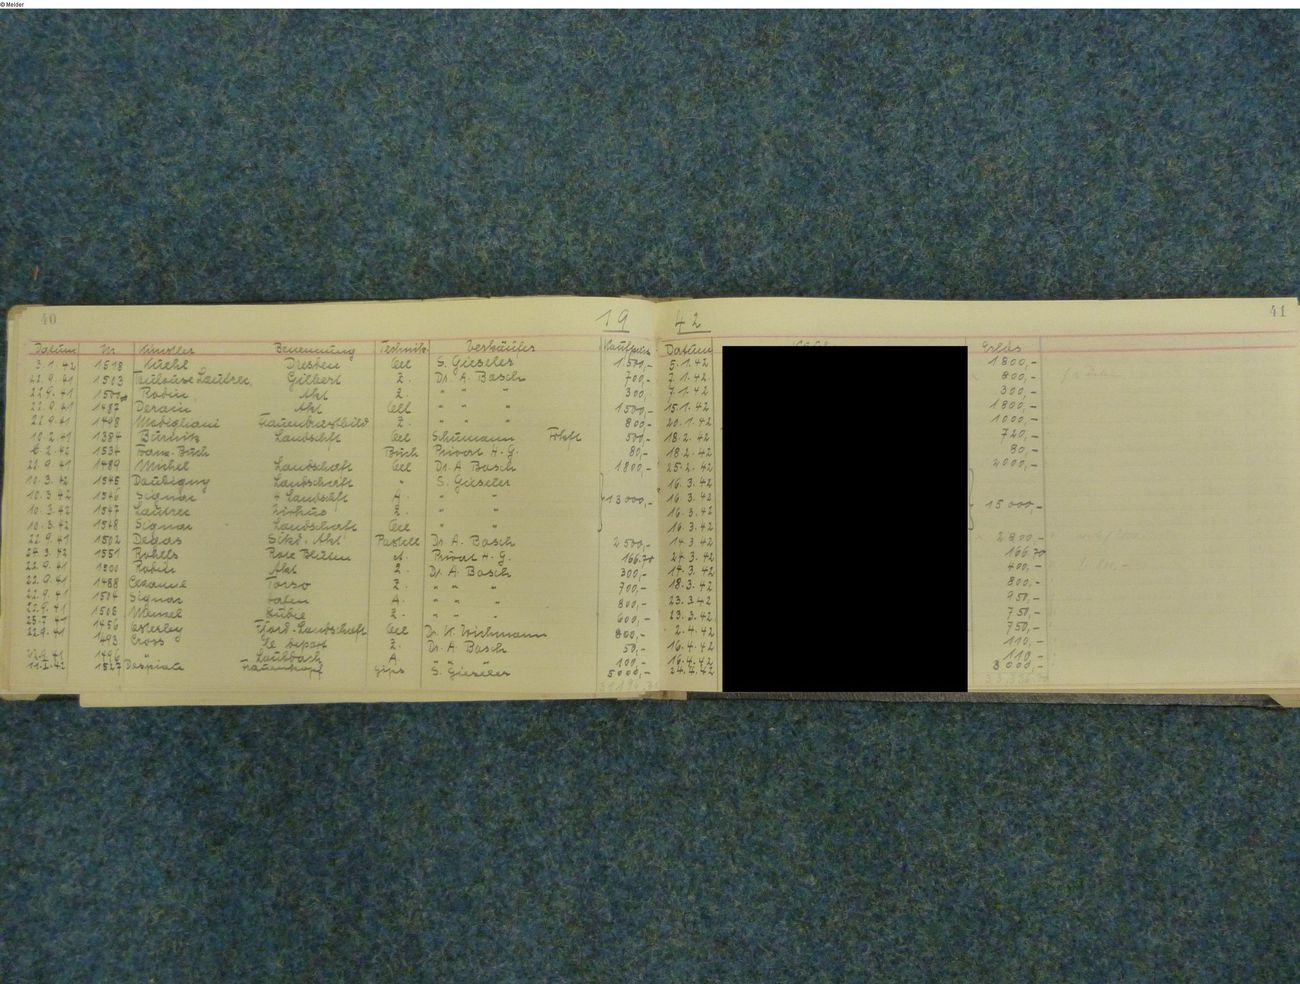 © Melder
40 19 42 41
Datum Nr. Künstler Benennung Technik Verkäufer Kaufpreis Datum Erlös
3.1.42 1518 Kuehl Dresden Oel S. Gieseler 1.500,- 5.1.42 1800,-
22.9.41 1503 Toulouse Lautrec, Gilbert Z. Dr. A. Basch 700,- 7.1.42 800,-
22.9.41 1500 Rodin, Akt Z. " " " 300,- 7.1.42 300,-
22.9.41 1487 Derain Akt Oell " " " 1500,- 15.1.42 1800,-
22.9.41 1498 Modigliani Frauenbrustbild Z. " " " 800,- 20.1.42 1000,-
10.2.41 1384 Landschft Oel Schumann Frkft 500,- 18.2.42 720,-
6.2.42 1534 Franz. Buch Buch Privat H.G. 80,- 18.2.42 80,-
22.9.41 1489 Michel Landschaft Oel Dr. A Basch 1800,- 25.2.42 2000,-
10.3.42 1545 Daubigny Landschaft " S. Gieseler 16.3.42
10.3.42 1546 Signac 4 Landschft A. " " 13000,- 16.3.42 15000,-
10.3.42 1547 Lautrec Zirkus Z. " " 16.3.42
10.3.42 1548 Signac Landschaft Oel " " 16.3.42
22.9.41 1502 Degas Sitzd. Akt Pastell Dr. A. Basch 2500,- 14.3.42 2800,-
24.3.42 1551 Rohlfs Rote Blumen A. Privat H.G. 166.70 24.3.42 166.70
22.9.41 Rodin Akt Z. Dr. A. Basch 300,- 14.3.42 400,-
22.9.41 1488 Cezanne Torso Z. " " " 700,- 18.3.42 800,-
22.9.41 1504 Signac Hafen A. " " " 800,- 23.3.42 950,-
22.9.41 1505 Z. " " " 600,- 23.3.42 750,-
25.7.41 1456 Osterley Nord. Landschaft Oel Dr. W. Wichmann 800,- 2.4.42 750,-
22.9.41 1493 Cross Le depart Z. Dr. A. Basch 50,- 16.4.42 110,-
1496 " A. " " 100,- 16.4.42 110,-
1527 Despiau Frauenkopf Gips S. Gieseler 5000,- 24.4.42 8000,-